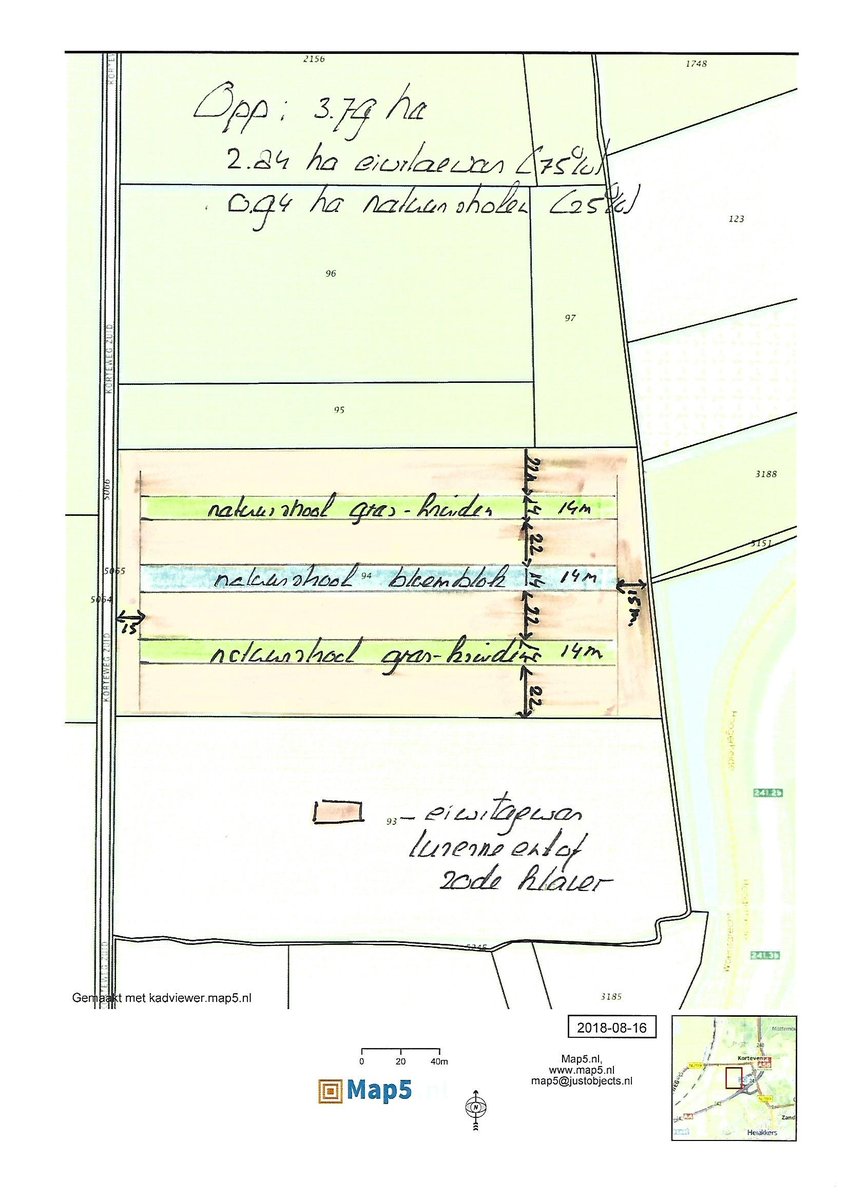 2156
1748
KORTE
Opp: 3.79 ha
2.84 ha eiwitgewas (75%)
0.94 ha natuurstroken (25%)
123
96
97
KORTEWEG ZUID
95
22M
3188
5066
natuurstrook gras-kruiden 14 14m
22
5151
5065
natuurstrook 94 bloemblok 14 14m
5064
15
15m.
22
natuurstrook gras-kruiden 14 14m
KORTEWEG ZUID
22
241.2b
93 - eiwitgewas
luzerne en/of
rode klaver
241.3b
EWEG ZUID
Gemaakt met kadviewer.map5.nl
3185
2018-08-16
0 20 40m
Map5.nl,
www.map5.nl
map5@justobjects.nl
Map5
N
Korteven
A58
Zand
Heiakkers